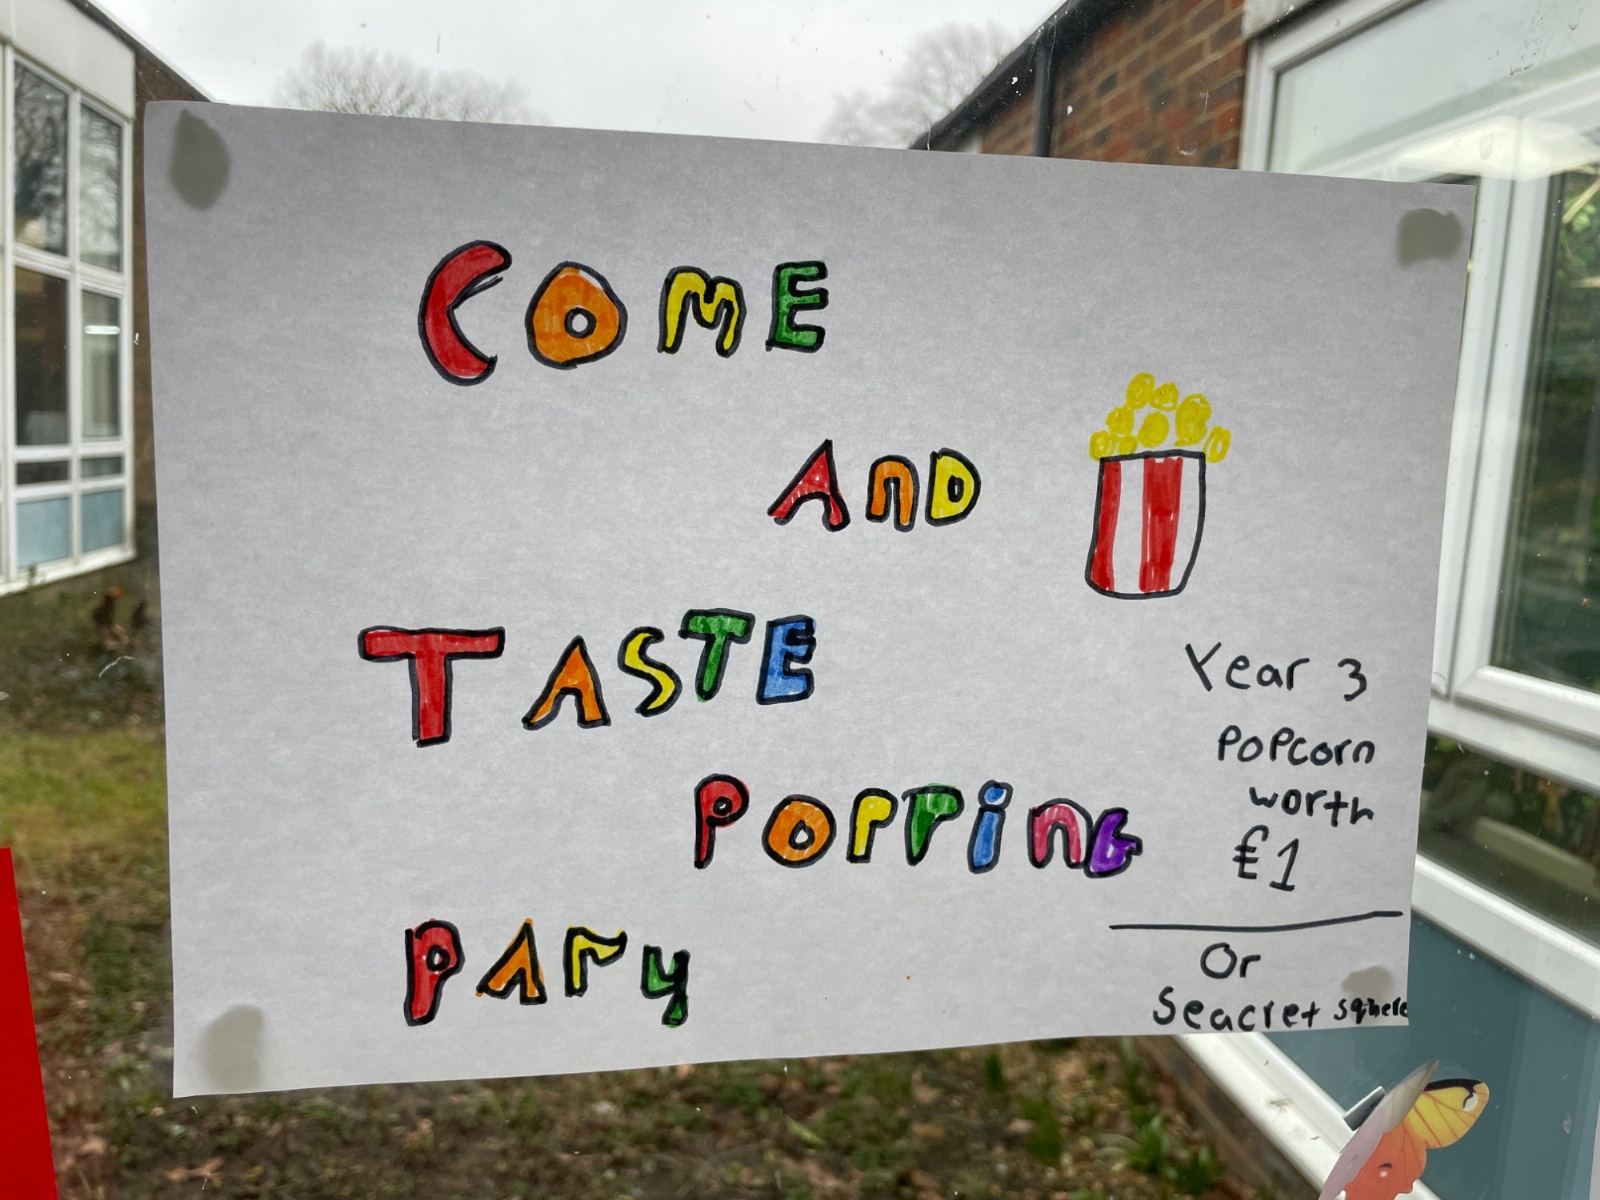 COME
AnD
TASTE
POPPinG
PAry
Year 3
POPcorn
worth
£1
Or
Seacret